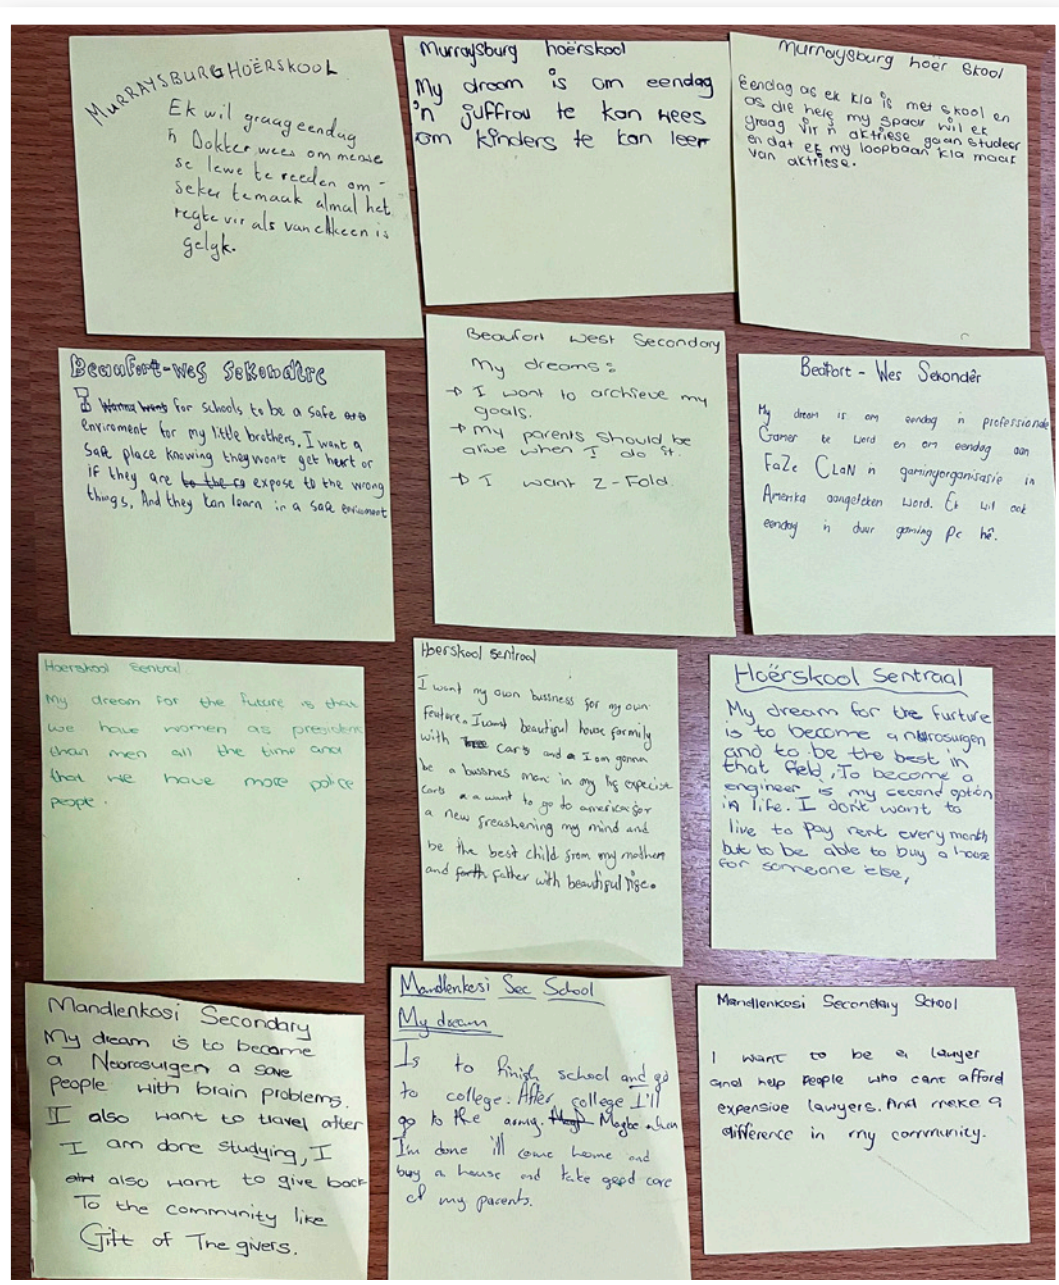 MURRAYSBURG HOËRSKOOL
Ek wil graag eendag
'n Dokter wees om mense
se lewe te reeden om -
seker te maak almal het
regte vir als van elkeen is
gelyk.
Murraysburg hoërskool
My droom is om eendag
'n juffrou te kan wees
om kinders te kan leer
Murraysburg hoër Skool
Eendag as ek kla is met skool en
as die here my spaar wil ek
graag vir 'n aktriese gaan studeer
en dat ek my loopbaan kla maak
van aktriese.
Beaufort-Wes Sekondêre
I Wanna want for schools to be a safe
enviroment for my little brothers. I want a
safe place knowing they won't get heart or
if they are to the expose to the wrong
things, And they can learn in a safe enviroment
Beaufort West Secondary
My dreams:
→ I want to archieve my
goals.
→ My parents should be
alive when I do it.
→ I want Z-Fold.
Beafort - Wes Sekondêr
My droom is om eendag 'n professionele
Gamer te word en om eendag aan
FaZe CLaN 'n gamingorganisasie in
Amerika aangeteken word. Ek wil ook
eendag 'n duur gaming Pc hê.
Hoerskool Sentraal
My dream for the future is that
we have women as president
than men all the time and
that we have more police
people.
Hoerskool Sentraal
I want my own bussness for my own
feature. I want beautiful house formily
with cars and a I am gonna
be a bussnes man in my expecise
cars a a want to go to america for
a new freashening my mind and
be the best child from my mothen
and forth father with beautiful
Hoërskool Sentraal
My dream for the furture
is to become a nuorosurgen
and to be the best in
that field, To become a
engineer is my second option
in life. I don't want to
live to pay rent every month
but to be able to buy a house
for someone else,
Mandlenkosi Secondary
My dream is to become
a Neorosurgen a save
people with brain problems.
I also want to travel after
I am done studying, I
also want to give back
To the community like
Gift of The givers.
Mandlenkosi Sec School
My dream
Is to finish school and go
to college. After college I'll
go to the army. Magbe when
I'm done i'll come home and
buy a house and take good care
of my parents.
Mandlenkosi Secondary School
I want to be a lawyer
and help people who cant afford
expensive lawyers. And make a
difference in my community.